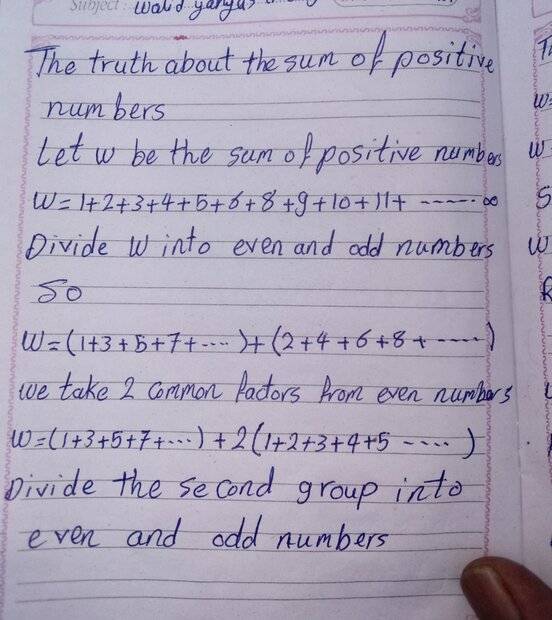 Subject: walid yangus
The truth about the sum of positive
numbers
Let w be the sum of positive numbers
W=1+2+3+4+5+6+8+9+10+11+ ------∞
Divide W into even and odd numbers
So
W=(1+3+5+7+----)+(2+4+6+8+-----)
we take 2 common factors from even numbers
W=(1+3+5+7+...)+2(1+2+3+4+5 ----)
Divide the second group into
even and odd numbers